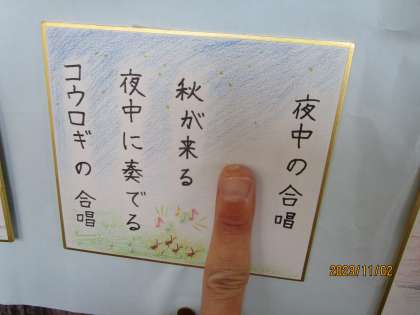 夜中の合唱
秋が来る
夜中に奏でる
コウロギの合唱
2023/11/02